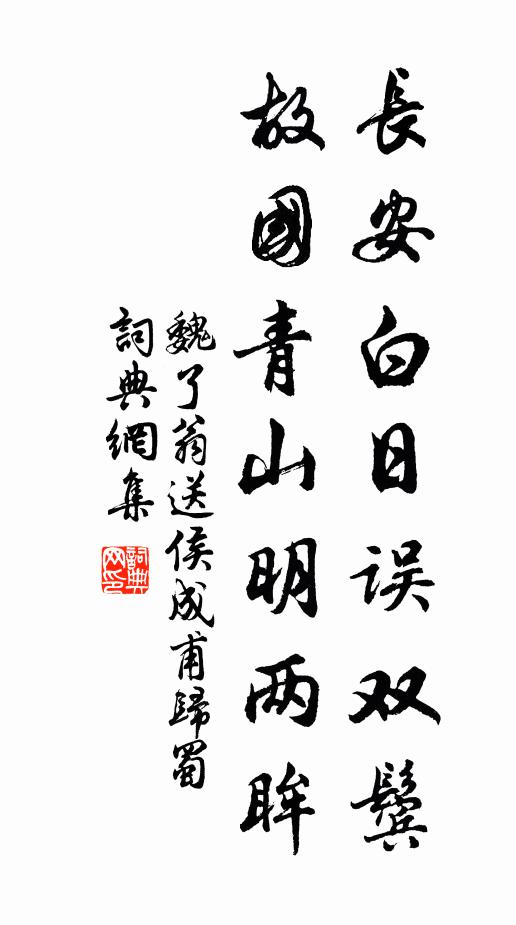 長安白日误双鬓
故國青山明两眸
魏了翁送侯成甫歸蜀
詞典網集
詞典
网印